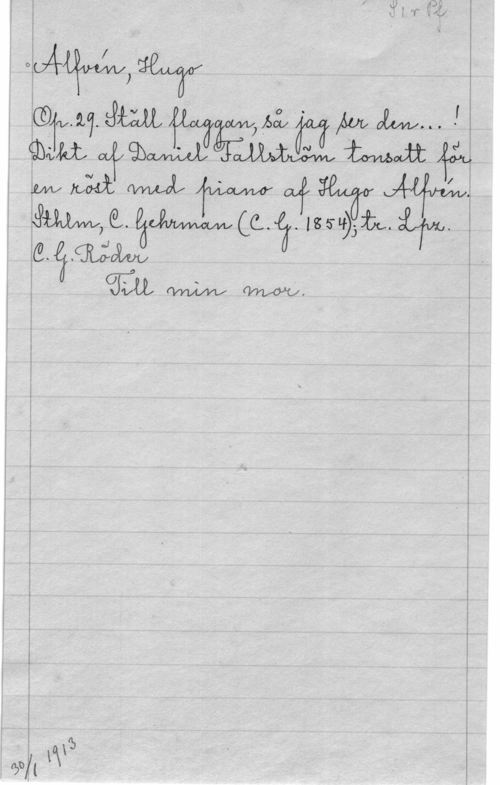 S 1 r Pf
Alfvén, Hugo
Op. 29. Ställ flaggan, så jag ser den... !
Dikt af Daniel Fallström tonsatt för
en röst med piano af Hugo Alfvén.
Sthlm, C. Gehrman (C. G. 1854); tr. Lpz.
C. G. Röder
Till min mor.
30/1 1913